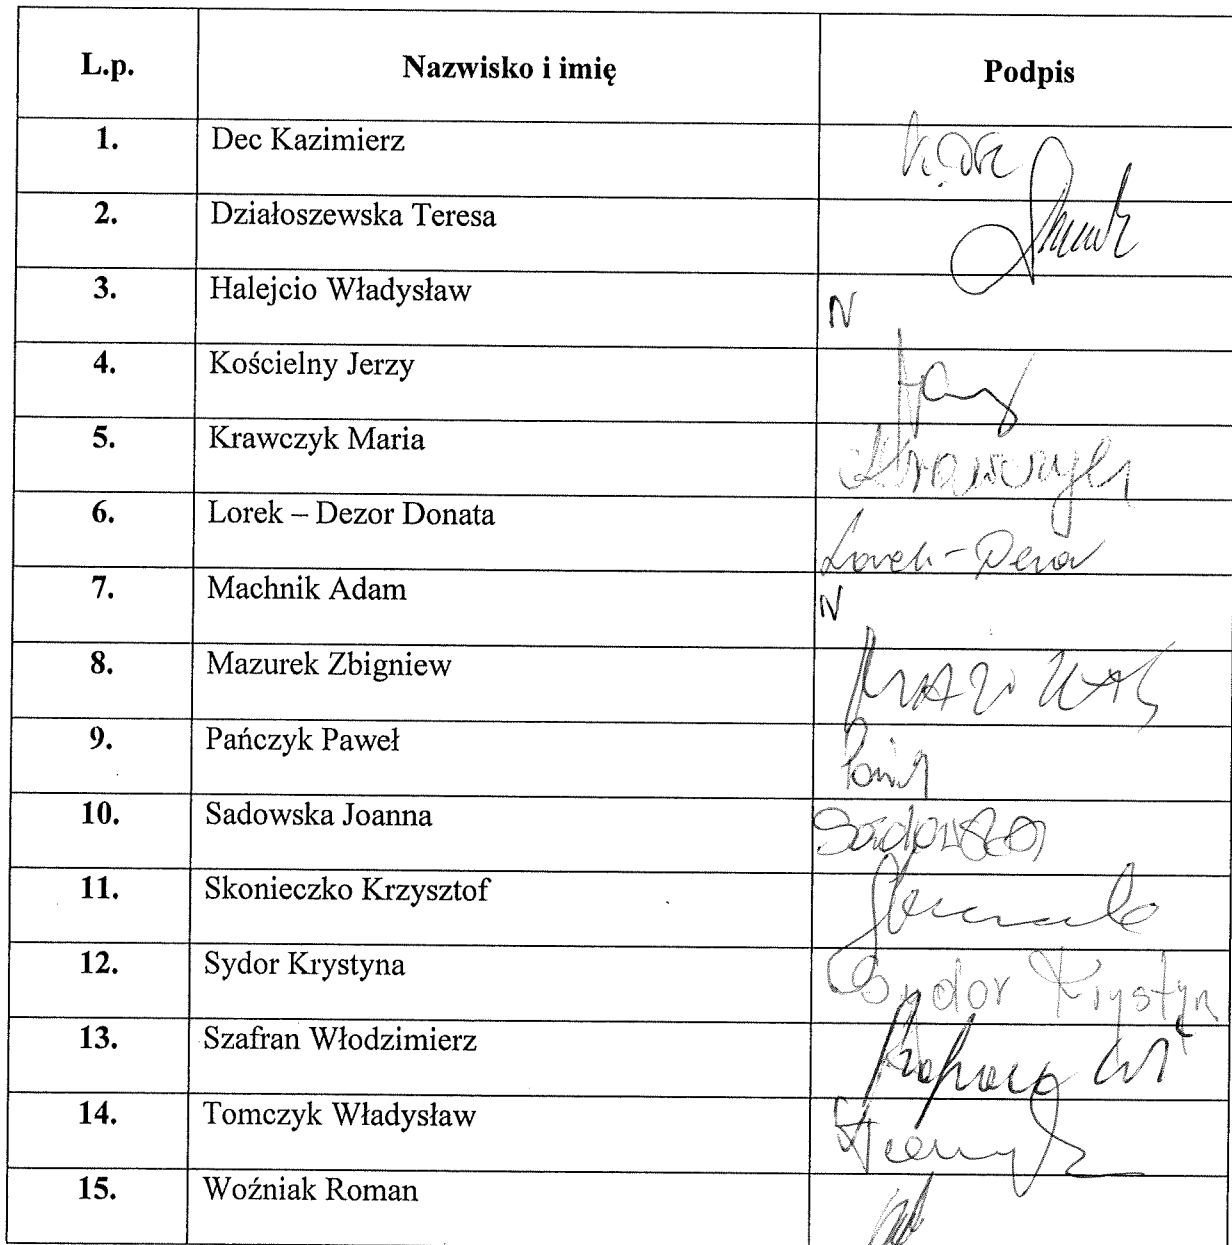 L.p. Nazwisko i imię Podpis
1. Dec Kazimierz
2. Działoszewska Teresa
3. Halejcio Władysław N
4. Kościelny Jerzy
5. Krawczyk Maria Krawczyk
6. Lorek – Dezor Donata Lorek-Dezor
7. Machnik Adam N
8. Mazurek Zbigniew
9. Pańczyk Paweł
10. Sadowska Joanna Sadowska
11. Skonieczko Krzysztof
12. Sydor Krystyna Sydor Krystyn
13. Szafran Włodzimierz
14. Tomczyk Władysław
15. Woźniak Roman